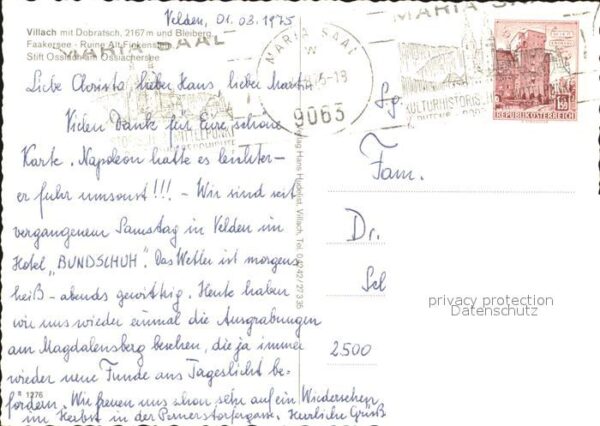 Velden, 01.08.1975
Villach mit Dobratsch, 2167 m und Bleiberg
Faakersee - Ruine Alt Finkenstein
Stift Ossiach am Ossiachersee
Liebe Christa, lieber Hans, lieber Martin
Vielen Dank für Eure schöne
Karte. Napoleon hatte es leichter-
er fuhr umsonst!!! - Wir sind seit
vergangenem Samstag in Velden im
Hotel „BUNDSCHUH". Das Wetter ist morgens
heiß - abends gewittrig. Heute haben
wir uns wieder einmal die Ausgrabungen
am Magdalensberg besehen, die ja immer
wieder neue Funde ans Tageslicht be-
fördern. Wir freuen uns schon sehr auf ein Wiedersehen
im Herbst in der Pernerstorfergasse. Herzliche Grüße
R 1276
Verlag Hans Huderlist, Villach, Tel. 04242/27335
MARIA SAAL
MARIA SAAL
75-18
9063
MARIA SAAL
KULTURHISTORISCHER
1.50
REPUBLIK ÖSTERREICH
Fam.
Dr.
2500
privacy protection
Datenschutz